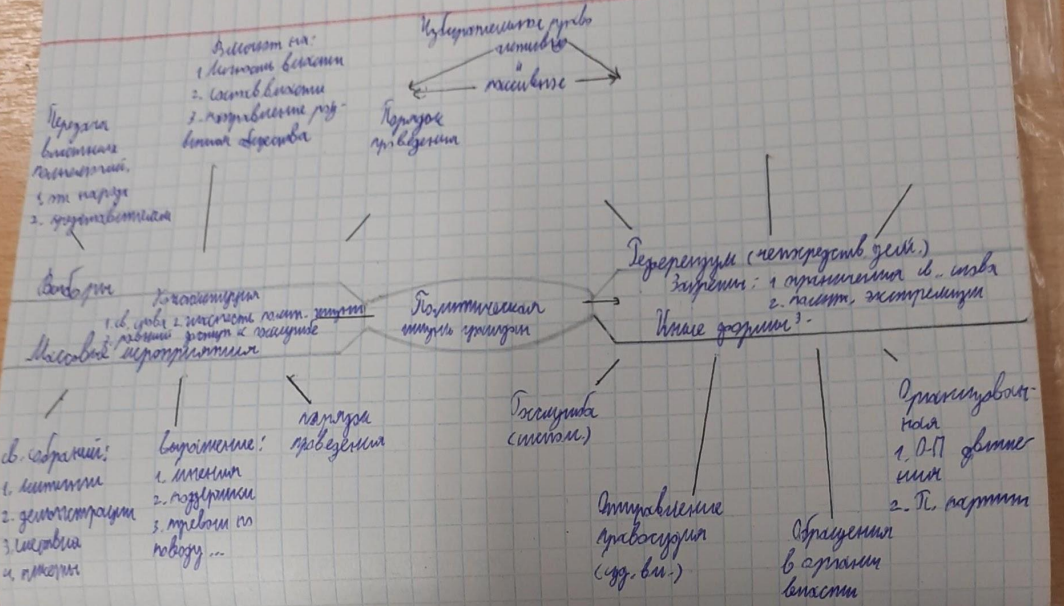 Избирательное право
активно
и
пассивное
Влияют на:
1. Личность власти
2. состав власти
3. направление раз-
вития общества
Порядок
проведения
Передача
властных
полномочий.
1. от народа
2. представителям
Выборы
Конституция
1. св. слова 2. гласность полит.
3. равный доступ к госслужбе
Массовые мероприятия
Политическая
жизнь граждан
Референдум (непосредств. дем.)
Запреты: 1. ограничения св. слова
2. полит. экстремизм
Иные формы:
св. собраний:
1. митинги
2. демонстрации
3. шествия
4. пикеты
выражение:
1. мнения
2. поддержки
3. тревоги по
поводу ...
порядок
проведения
Госслужба
(исполн.)
Отправление
правосудия
(суд. вл.)
Обращения
в органы
власти
Организован-
ная
1. О-П движе-
ния
2. П. партии